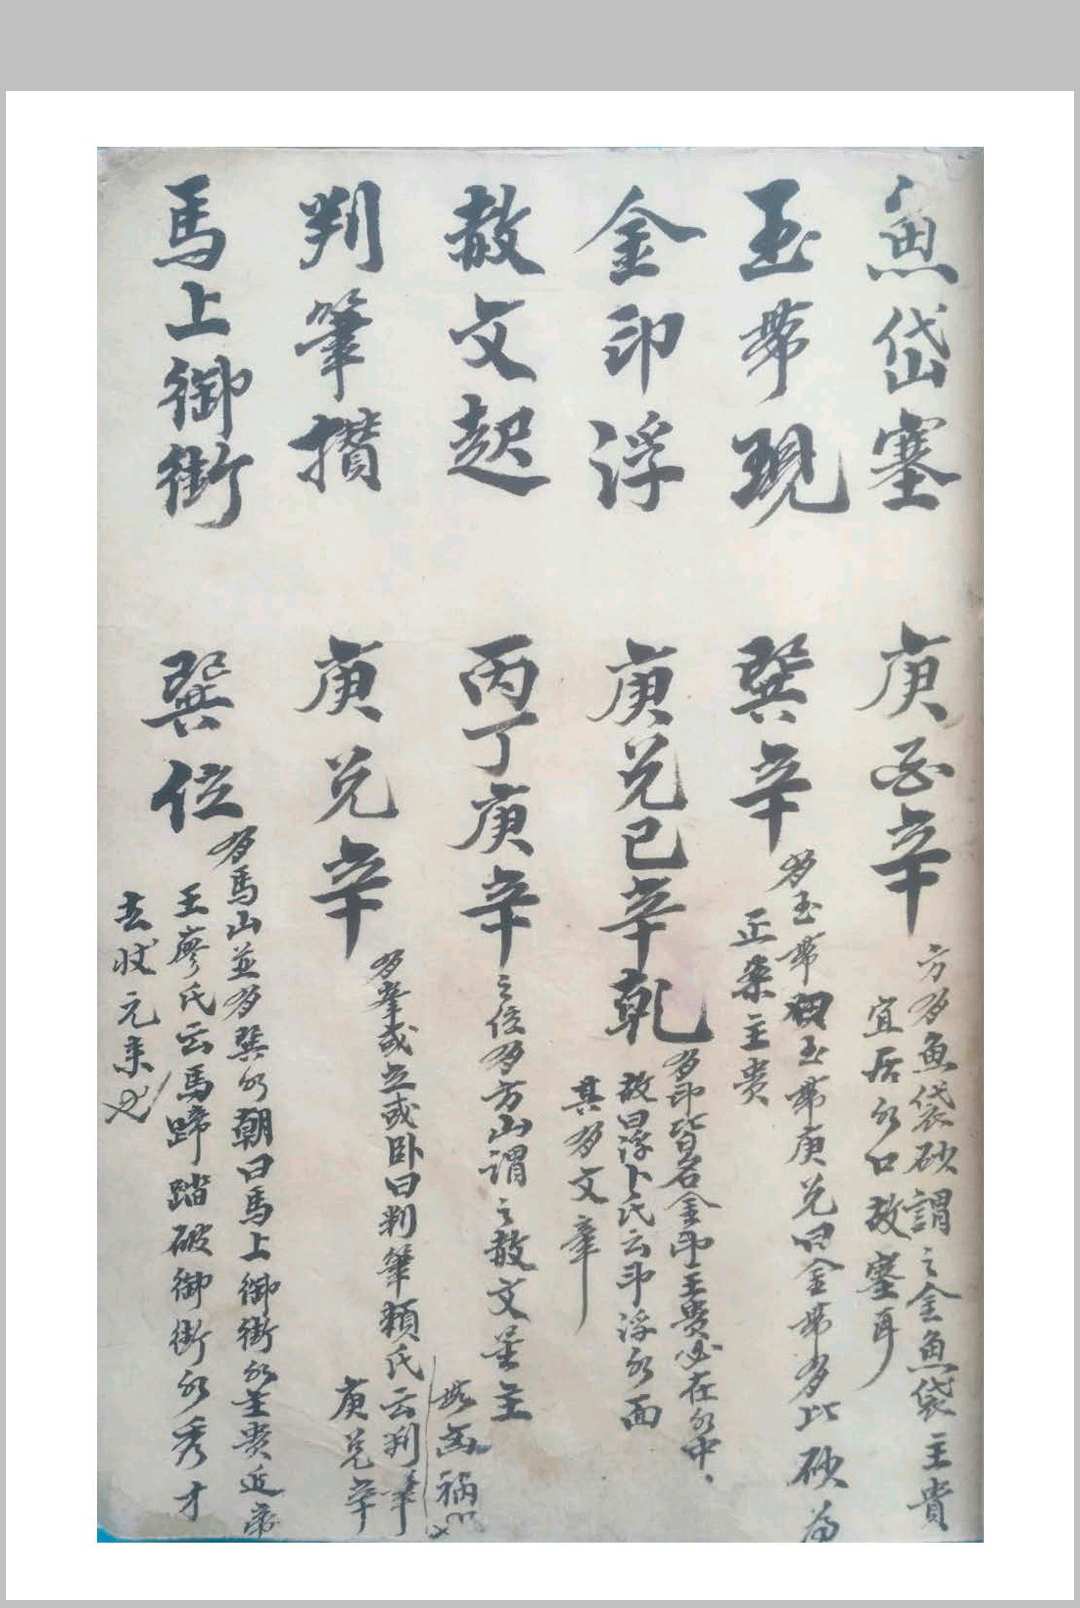 魚岱塞 庚酉辛
方有魚袋砂謂之金魚袋主貴
宜居水口故塞耳
玉帶現 巽辛
有玉帶砚玉帶庚兑曰金帶有比砂為
正案主貴
金印浮 庚兑巳辛乾
有印皆名金印主貴必在水中、
故曰浮卜氏云印浮水面
其有文章
赦文起 丙丁庚辛
之位有方山謂之赦文星主
無禍
判筆攅 庚兑辛
有峯或立或卧曰判筆頼氏云判筆
庚兑辛
馬上御街 巽位
有馬山並有巽水朝曰馬上御街水主貴近帝
王廖氏云馬蹄踏破御街水秀才
去状元来也